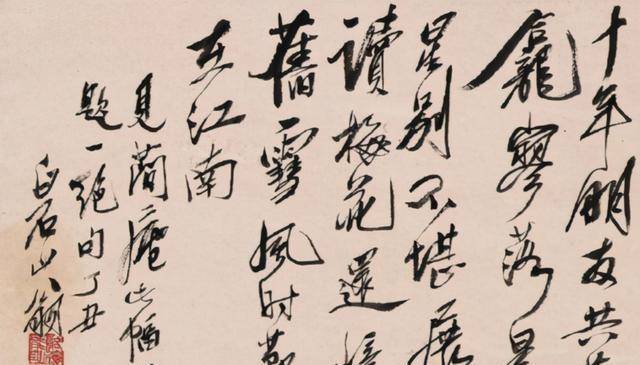 十年朋友共
龕寥落
星別不堪展
讀梅花還
舊雪風時
在江南
見簡庵此幅
題一絕句丁丑
白石山翁